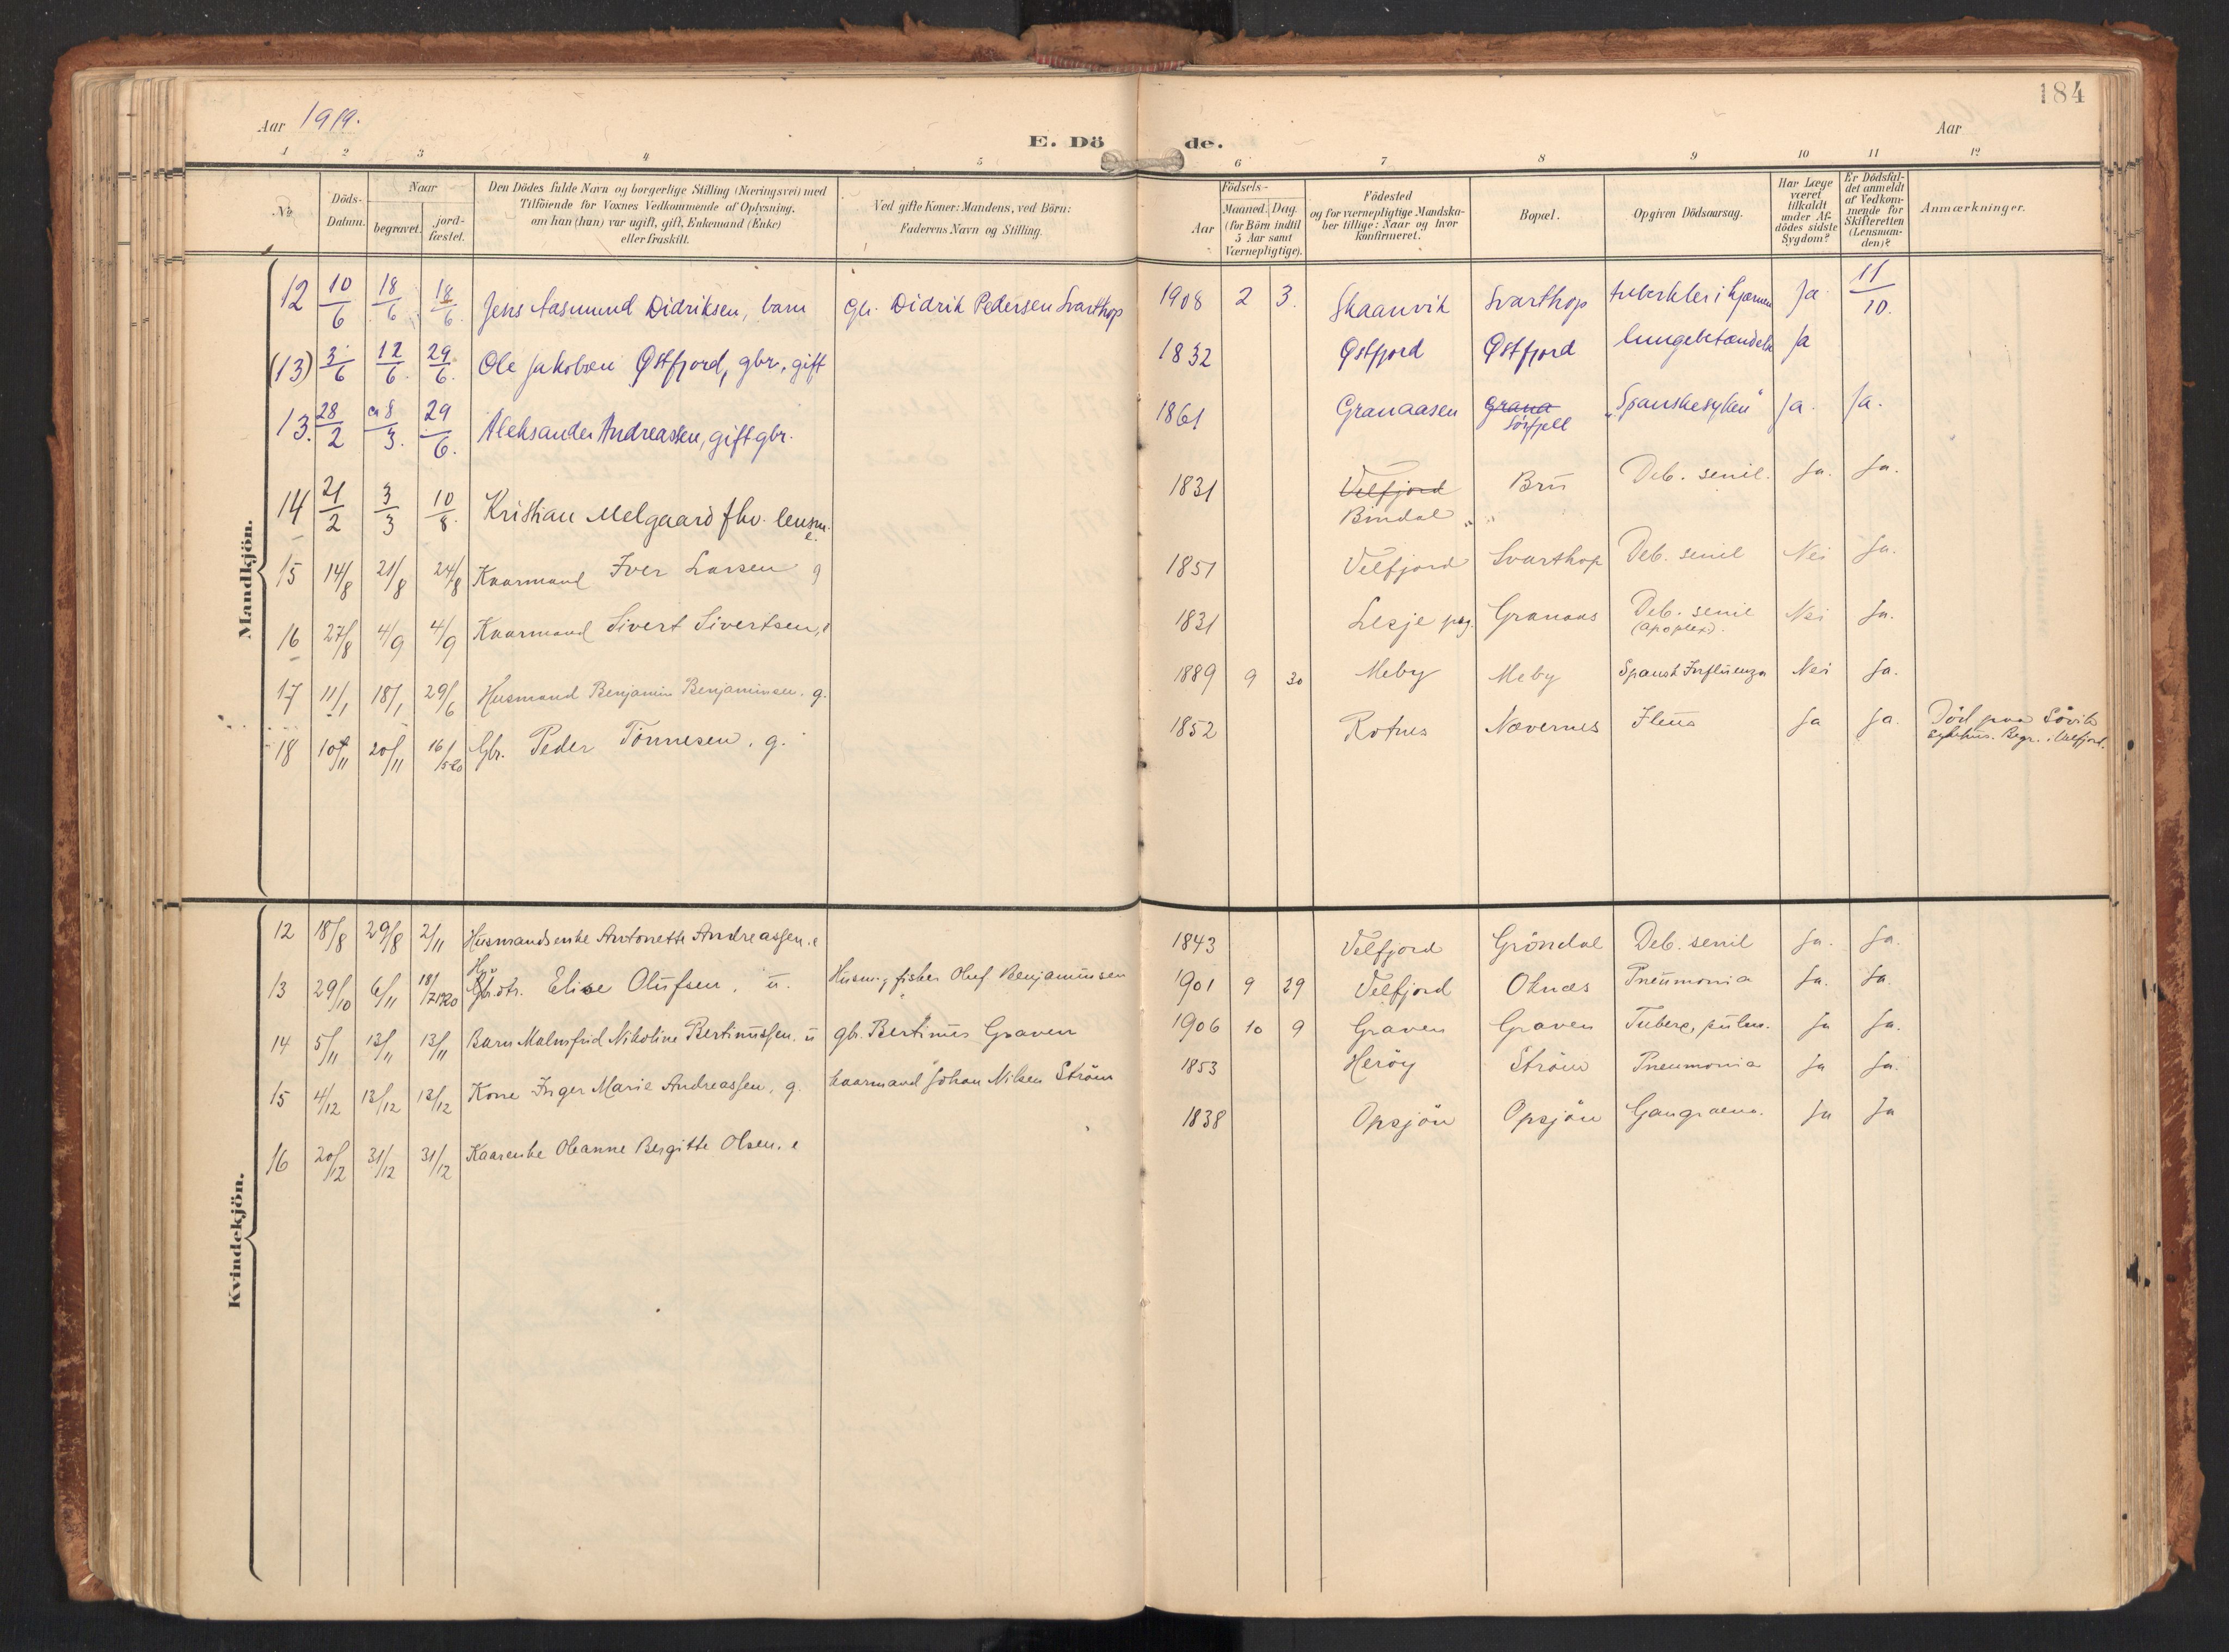 184
Aar 1919.
E. Dö de.
Aar
1 2 3 4 5 6 7 8 9 10 11 12
No
Döds-Datum.
Naar
begravet.
jord-fæstet.
Den Dödes fulde Navn og borgerlige Stilling (Næringsvei) med
Tilföiende for Voxnes Vedkommende af Oplysning,
om han (hun) var ugift, gift, Enkemand (Enke)
eller fraskilt.
Ved gifte Koner: Mandens, ved Börn:
Faderens Navn og Stilling.
Födsels-
Aar
Maaned. Dag.
(for Börn indtil
5 Aar samt
Værnepligtige).
Födested
og for værnepligtige Mandska-
ber tillige: Naar og hvor
konfirmeret.
Bopæl.
Opgiven Dödsaarsag.
Har Læge
været
tilkaldt
under Af-
dödes sidste
Sygdom?
Er Dödsfal-
det anmeldt
af Vedkom-
mende for
Skifteretten
(Lensman-
den)?
Anmærkninger.
Mandkjön.
12 10/6 18/6 18/6. Jens Aasmund Didriksen, barn Gbr. Didrik Pedersen Svarthop 1908 2 3. Skaanvik Svarthop tuberkler i hjernen Ja 11/10.
(13) 3/6 12/6. 29/6. Ole Jakobsen Østfjord, gbr., gift 1832 Østfjord Østfjord lungebetændelse Ja
13. 28/2 ca 8/3. 29/6. Aleksander Andreassen, gift gbr. 1861 Granaasen Grana Sörfjell „Spanskesyken" Ja. Ja.
14 21/2 3/3 10/8. Kristian Melgaard fhv. lensm. e. 1831 Velfjord Bindal Brü Deb. senil. Ja. Ja.
15 14/8 21/8 24/8 Kaarmand Iver Larsen g 1851 Velfjord Svarthop Deb. senil Nei Ja.
16 27/8 4/9 4/9 Kaarmand Sivert Sivertsen, 1831 Lesje prg. Granaas Deb. senil (apoplex). Nei Ja.
17 11/1 18/1 29/6 Husmand Benjamin Benjaminsen. g. 1889 9 30 Meby Meby Spansk Influenza Nei Ja.
18 10/11 20/11 16/5 20 Gbr. Peder Tönnesen. g. 1852 Rotnes Nævernes Ileus Ja Ja. Död paa Sövik sykehus. Begr. i Velfjord.
Kvindekjön.
12 18/8 29/8 2/11 Husmandsenke Antonette Andreassen. e 1843 Velfjord Gröndal Deb. senil Ja. Ja.
13 29/10 6/11 18/7 1920 Gbrdtr. Elise Olufsen. u. Husm., fisker Oluf Benjaminsen 1901 9 29 Velfjord Oknæs Pneumonia Ja. Ja.
14 5/11 13/11 13/11 Barn Malmfrid Nikoline Bertinussen. u gbr. Bertinus Graven 1906 10 9 Graven Graven Tuberc. pulm. Ja Ja.
15 4/12 13/12 13/12 Kone Inger Marie Andreassen, g. kaarmand Johan Nilsen Ström 1853 Heröy Ström Pneumonia Ja Ja.
16 20/12 31/12 31/12 Kaarenke Oleanne Bergitte Olsen. e 1838 Opsjön Opsjön Gangraena. Ja Ja